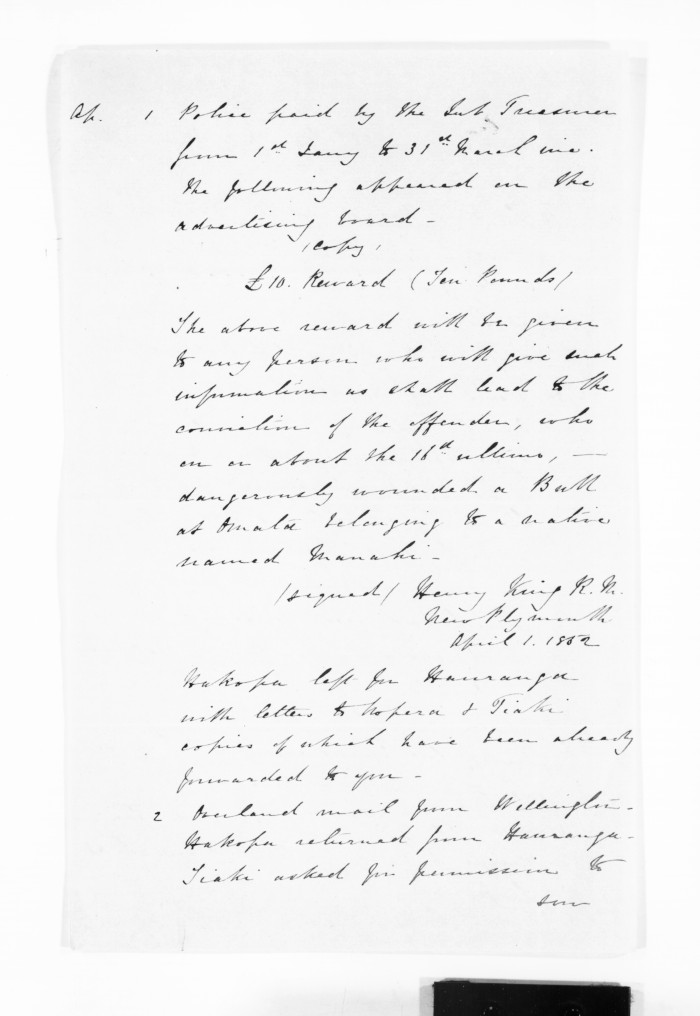 Ap. 1 Police paid by the Sub Treasurer
from 1st Jany to 31st March inc.
The following appeared on the
advertising board -
(copy)
£10. Reward (Ten Pounds)
The above reward will be given
to any person who will give such
information as shall lead to the
conviction of the offender, who
on or about the 16th ultimo, —
dangerously wounded a Bull
at Omata belonging to a native
named Manahi -
(signed) Henry King R.M.
New Plymouth
April 1. 1852
Hakopa left for Hauranga
with letters to Kopera & Tiaki
copies of which have been already
forwarded to you -
2 Overland mail from Wellington -
Hakopa returned from Hauranga -
Tiaki asked for permission to
sow